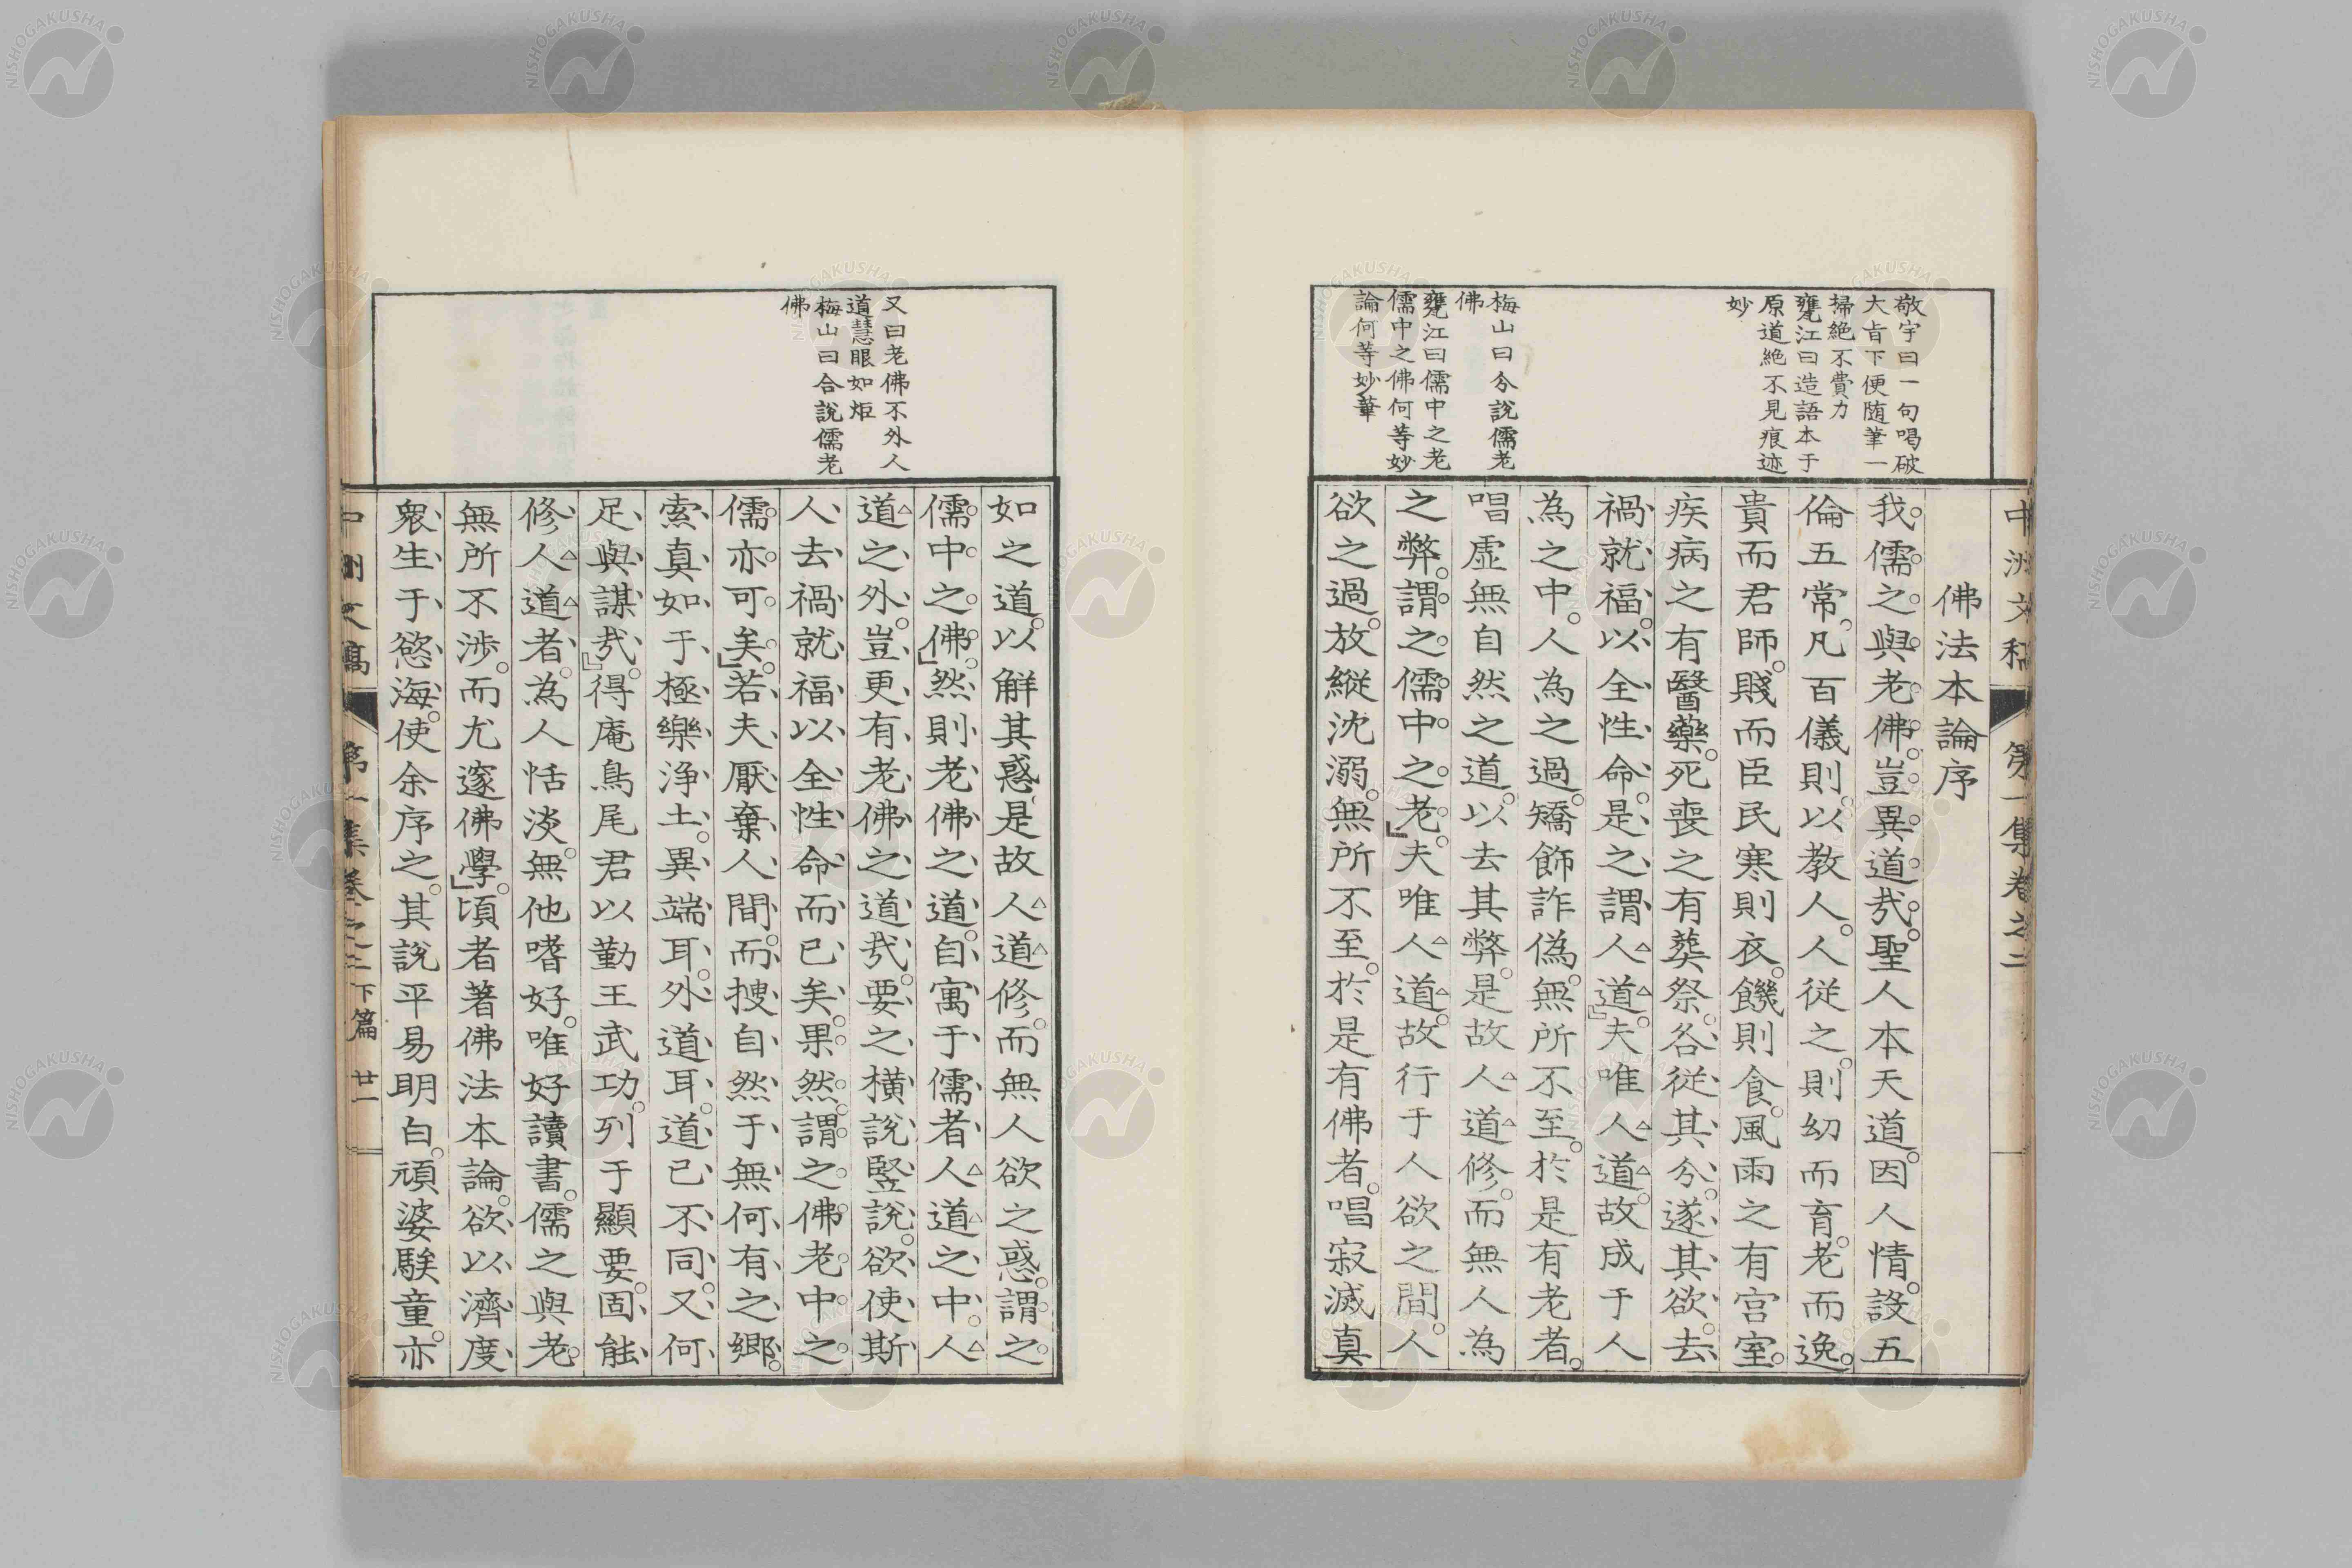 中洲文稿 第一集卷之二
敬宇曰一句喝破
大旨下便随筆一
掃絕不費力
甕江曰造語本于
原道絕不見痕迹
妙
梅山曰分說儒老
佛
甕江曰儒中之老
儒中之佛何等妙
論何等妙筆
佛法本論序
我儒之與老佛。豈異道哉。聖人本天道。因人情。設五
倫五常。凡百儀則。以教人。人從之。則幼而育。老而逸。
貴而君師。賤而臣民。寒則衣。饑則食。風雨之有宮室。
疾病之有醫藥。死喪之有葬祭。各從其分。遂其欲。去
禍就福。以全性命。是之謂人道。』夫唯人道。故成于人
為之中。人為之過。矯飾詐偽。無所不至。於是有老者。
唱虛無自然之道。以去其弊。是故人道修。而無人為
之弊。謂之儒中之老。』夫唯人道。故行于人欲之間。人
欲之過。放縱沈溺。無所不至。於是有佛者。唱寂滅真
又曰老佛不外人
道慧眼如炬
梅山曰合說儒老
佛
如之道。以解其惑。是故人道修。而無人欲之惑。謂之
儒中之佛。』然則老佛之道。自寓于儒者人道之中。人
道之外。豈更有老佛之道哉。要之橫說豎說。欲使斯
人去禍就福以全性命而已矣。果然謂之佛老中之
儒亦可矣。』若夫厭棄人間。而搜自然于無何有之鄉。
索真如于極樂淨土。異端耳。外道耳。道已不同。又何
足與謀哉。』得庵鳥尾君以勤王武功。列于顯要。固能
修人道者。為人恬淡。無他嗜好。唯好讀書。儒之與老。
無所不涉。而尤邃佛學。』頃者著佛法本論。欲以濟度
衆生于慾海。使余序之。其說平易明白。頑婆騃童。亦
中洲文稿 第一集卷之二 下篇 廿一